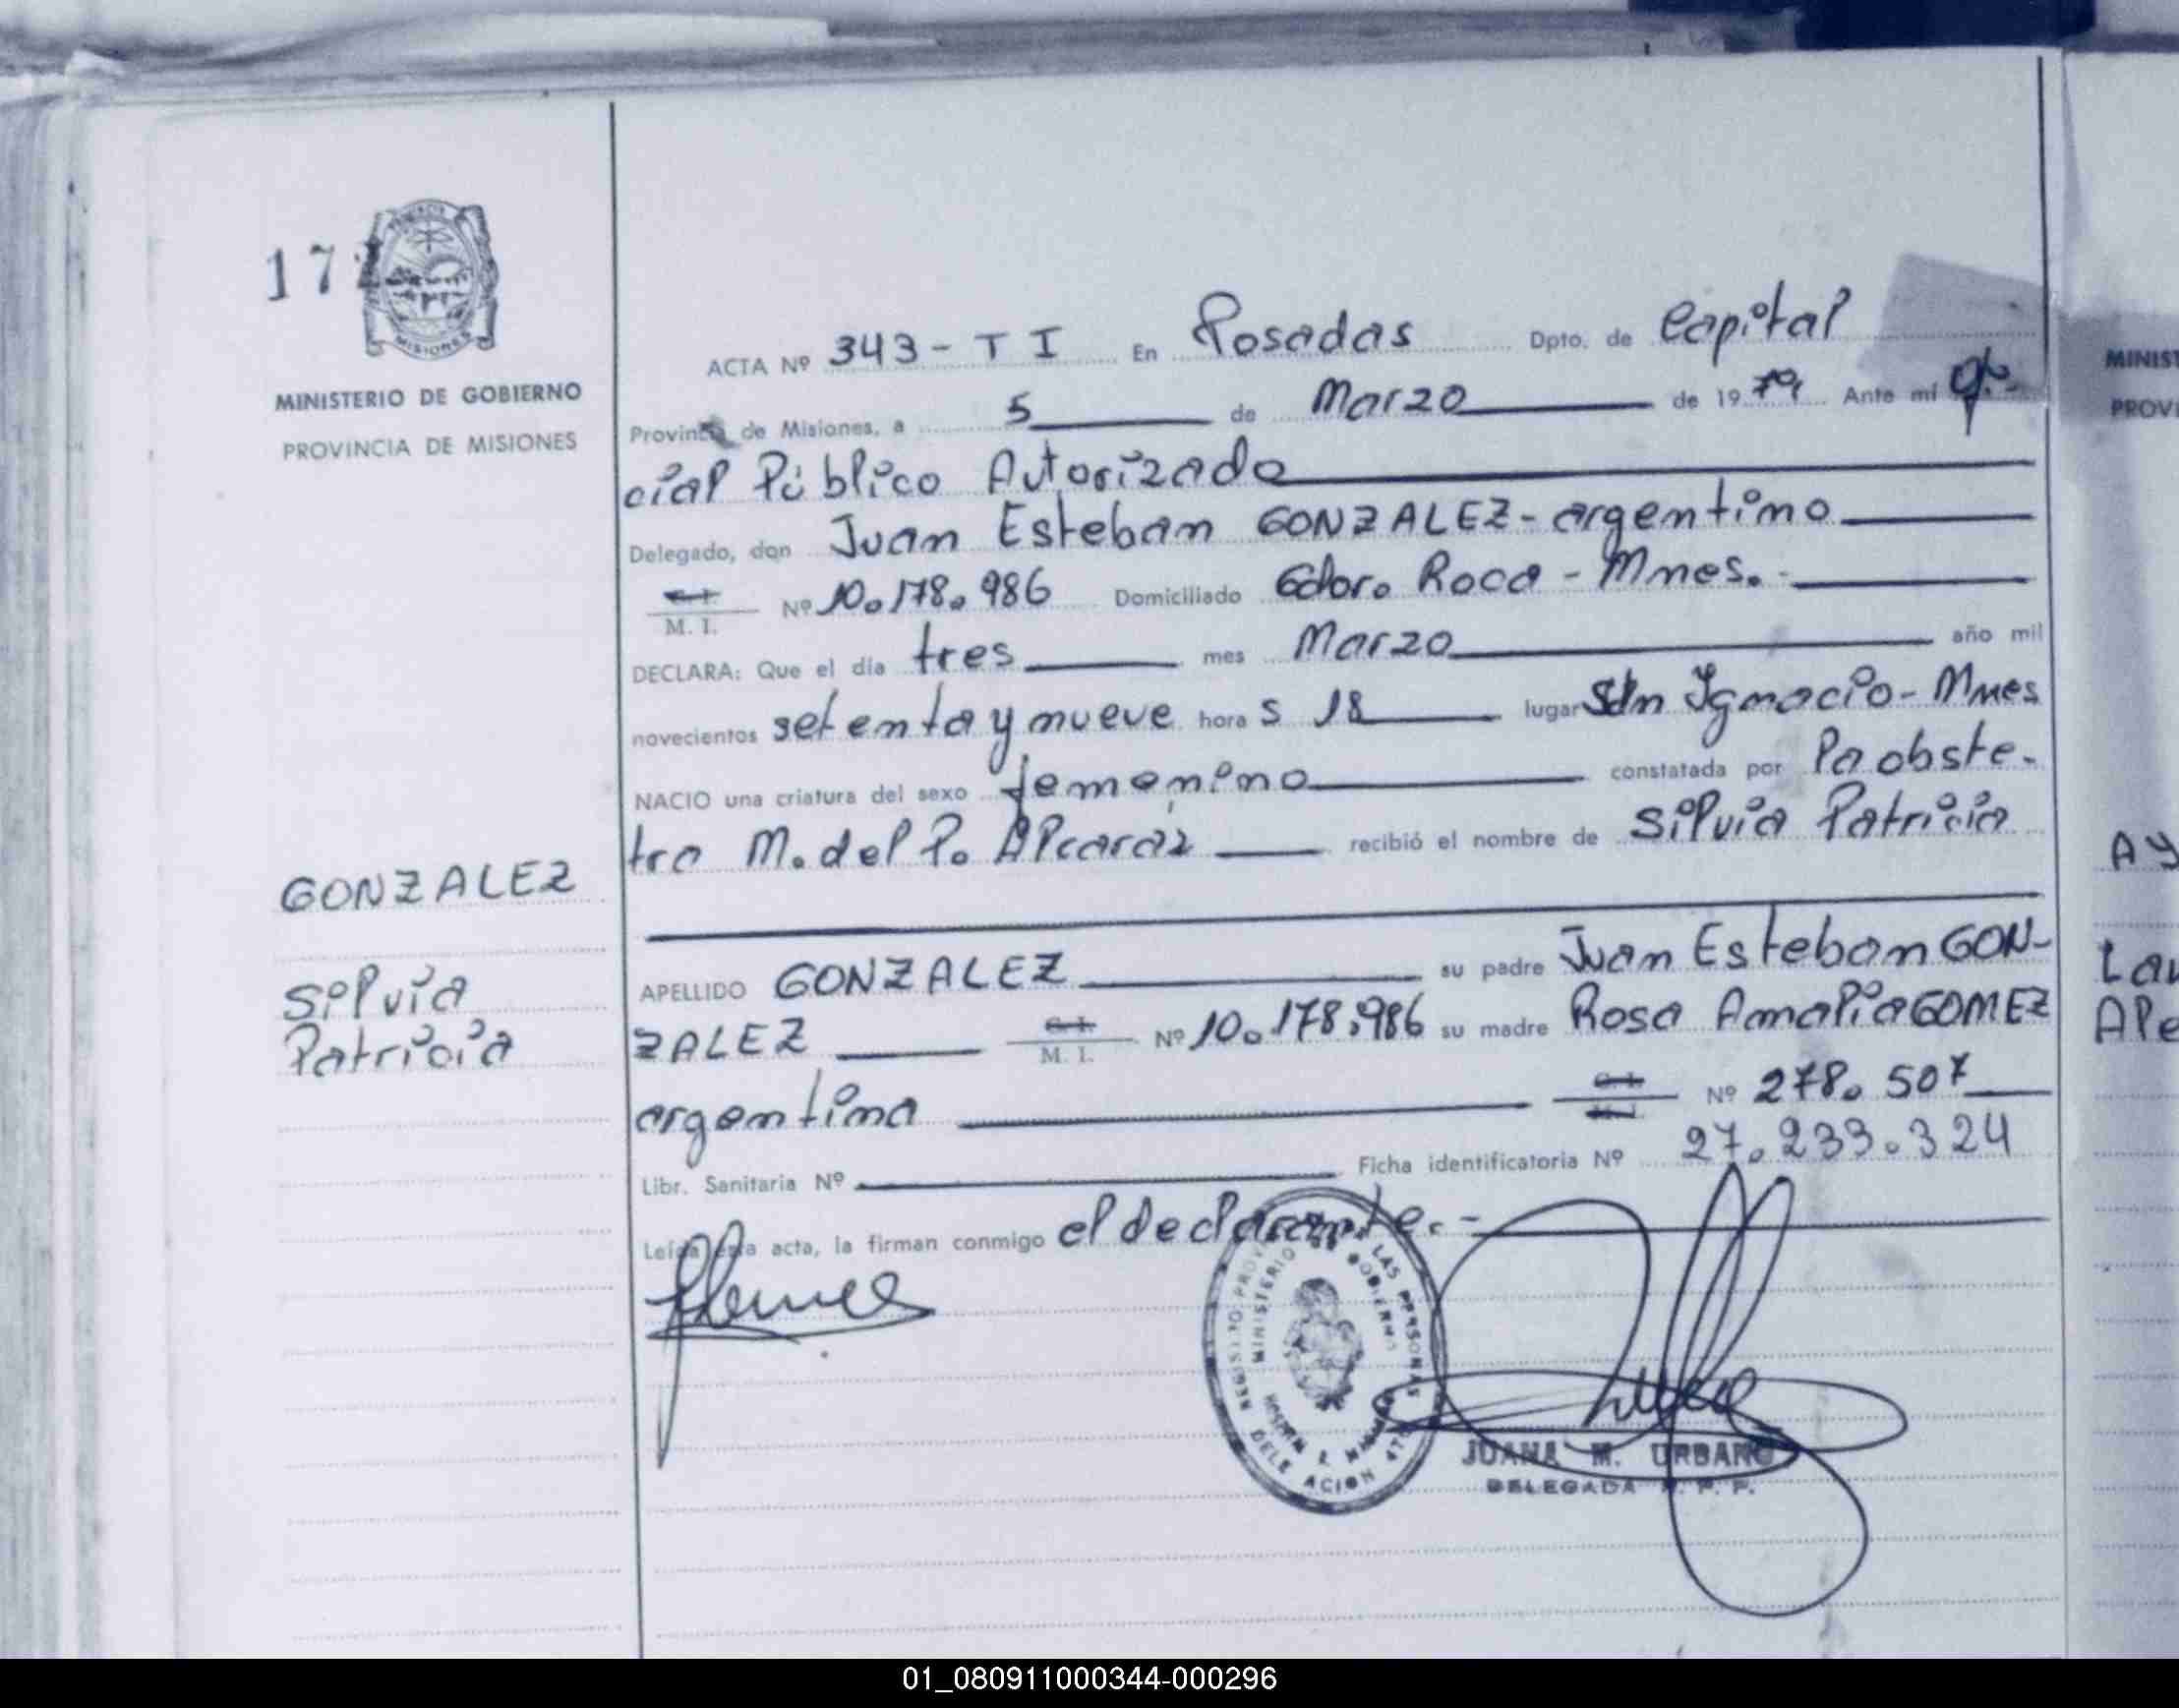 172
MINISTERIO DE GOBIERNO
PROVINCIA DE MISIONES
GONZALEZ
Silvia
Patricia
ACTA Nº 343 - T I En Posadas Dpto. de Capital
Provincia de Misiones, a 5 de Marzo de 19 79 Ante mí Ofi-
cial Público Autorizado
Delegado, don Juan Esteban GONZALEZ - argentino
C. I. M. I. Nº 10.178.986 Domiciliado Gdor. Roca - Mnes. -
DECLARA: Que el día tres mes Marzo año mil
novecientos setenta y nueve hora s 18 lugar San Ignacio - Mnes
NACIO una criatura del sexo femenino constatada por la obste-
tra M. del P. Alcaraz recibió el nombre de Silvia Patricia
APELLIDO GONZALEZ su padre Juan Esteban GON-
ZALEZ C. I. M. I. Nº 10.178.986 su madre Rosa Amalia GOMEZ
argentina C. I. M. I. Nº 278.507
Libr. Sanitaria Nº Ficha identificatoria Nº 27.233.324
Leída esta acta, la firman conmigo el declarante. -
REGISTRO PROV LAS PERSONAS
MINISTERIO GOBIERNO
DELEGACION
JUANA M. URBANO
DELEGADA R. P. P.
MINIST
PROVI
AY
Lau
Ale
01_080911000344-000296